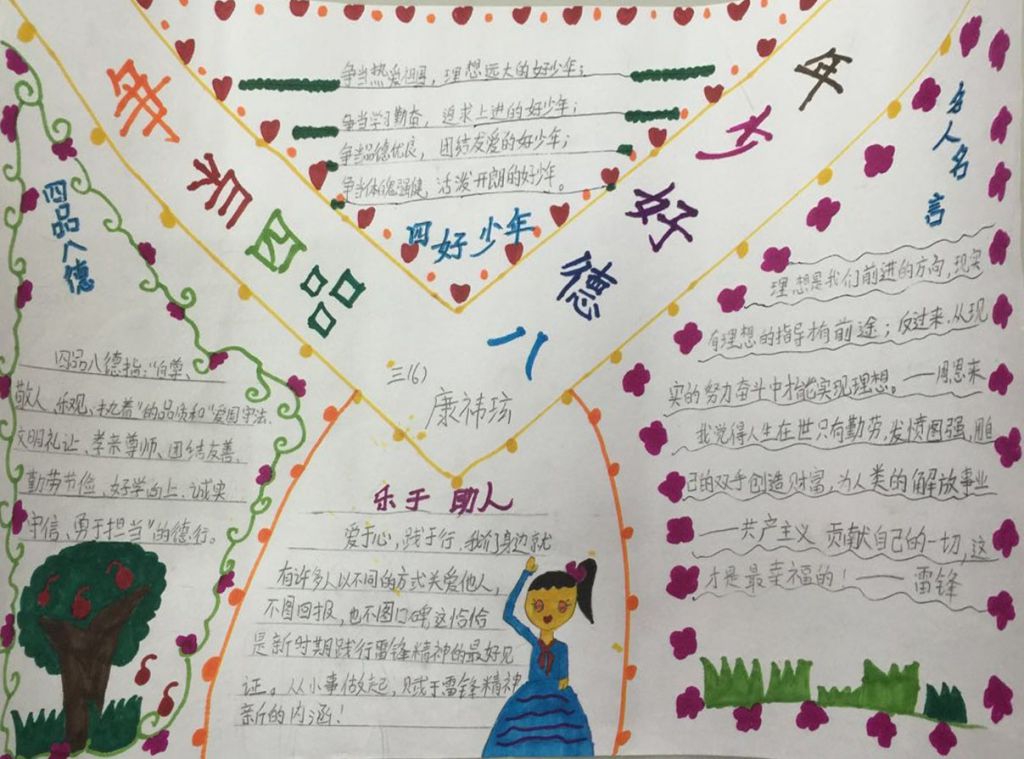 争当热爱祖国，理想远大的好少年；
争当学习勤奋，追求上进的好少年；
争当品德优良，团结友爱的好少年；
争当体魄强健，活泼开朗的好少年。
四好少年
争 四品
八德好少年
三(6)
四品八德
四品八德指：“自尊、
敬人、乐观、执着”的品质和“爱国守法、
文明礼让、孝亲尊师、团结友善、
勤劳节俭、好学向上、诚实
守信、勇于担当”的德行。
乐于助人
爱于心，践于行，我们身边就
有许多人以不同的方式关爱他人，
不图回报，也不图口碑这恰恰
是新时期践行雷锋精神的最好见
证。从小事做起，赋于雷锋精神
新的内涵！
名人名言
理想是我们前进的方向，现实
有理想的指导才有前途；反过来，从现
实的努力奋斗中才能实现理想。——周恩来
我觉得人生在世只有勤劳，发愤图强，用自
己的双手创造财富，为人类的解放事业
——共产主义 贡献自己的一切，这
才是最幸福的！——雷锋